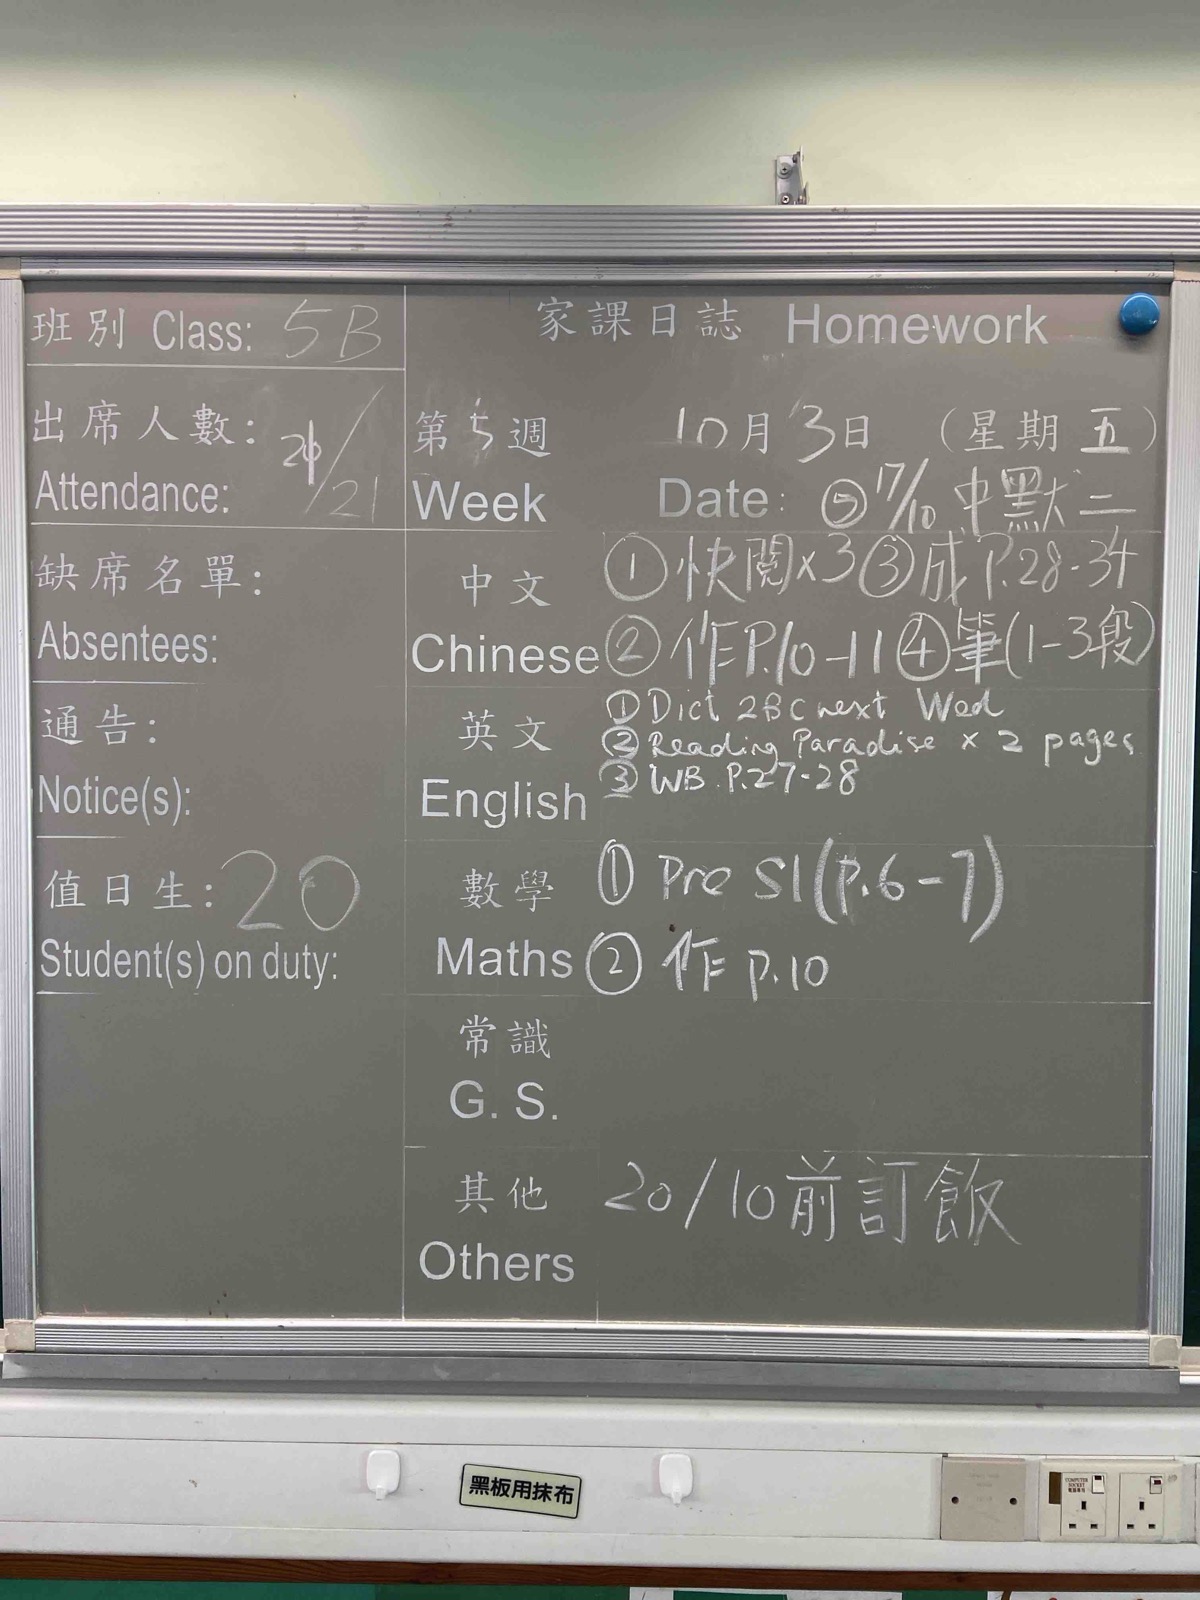 班別 Class: 5B
出席人數: 21/21
Attendance:
缺席名單:
Absentees:
通告:
Notice(s):
值日生: 20
Student(s) on duty:
家課日誌 Homework
第5週 10月3日 (星期五)
Week Date: ⑤ 17/10 中默二
中文 ① 快閱x3 ③ 成 P.28-34
Chinese ② 作 P.10-11 ④ 筆(1-3段)
英文 ① Dict 2BC next Wed
② Reading Paradise x 2 pages
English ③ WB P.27-28
數學 ① Pre S1(P.6-7)
Maths ② 作 P.10
常識
G. S.
其他 20/10前訂飯
Others
黑板用抹布
COMPUTER SOCKET
電腦專用